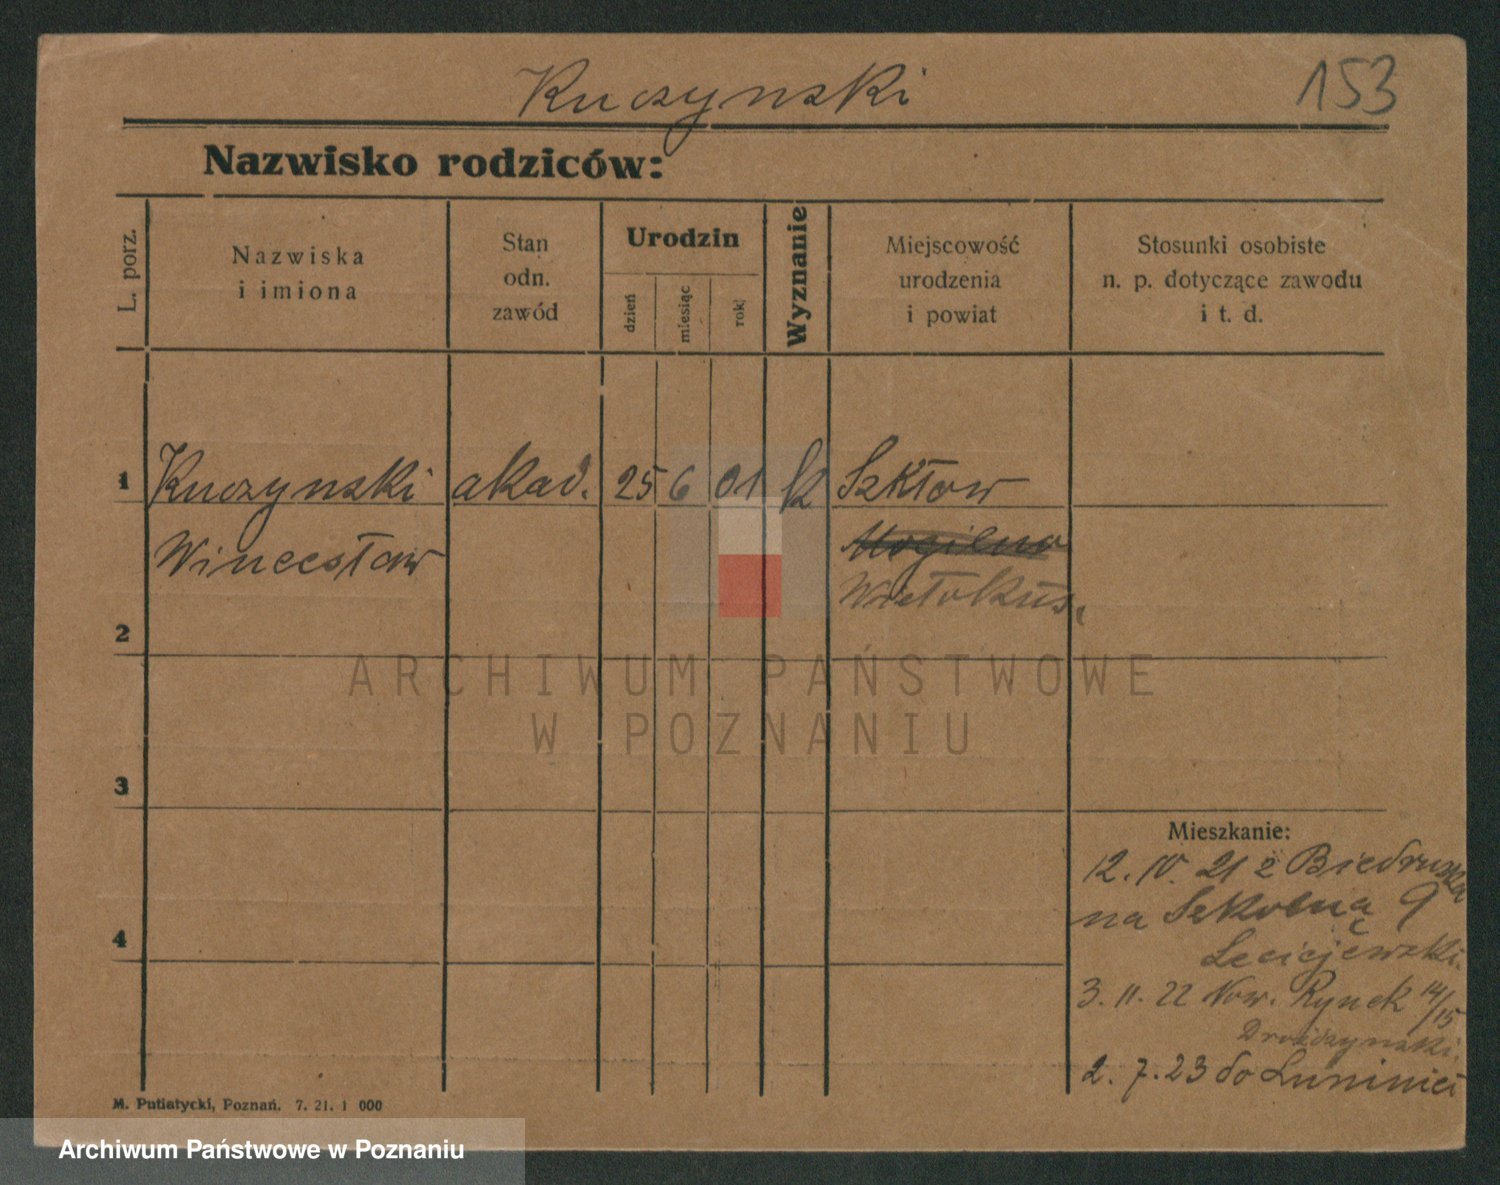 Kuczynski 153
Nazwisko rodziców:
L. porz.
Nazwiska
i imiona
Stan
odn.
zawód
Urodzin
dzień
miesiąc
rok
Wyznanie
Miejscowość
urodzenia
i powiat
Stosunki osobiste
n. p. dotyczące zawodu
i t. d.
1 Kuczynski akad. 25 6 01 k Szkłow
Mogilno
Wincesław
2
ARCHIWUM PAŃSTWOWE
W POZNANIU
3
Mieszkanie:
12. IV. 21 z Biedruska
na Szkolną 9
Leciejewski.
3. 11. 22 Now. Rynek 14/15
Drożdzynski.
4
2. 7. 23 do Łuniniec
M. Putiatycki, Poznań. 7. 21. 1 000
Archiwum Państwowe w Poznaniu